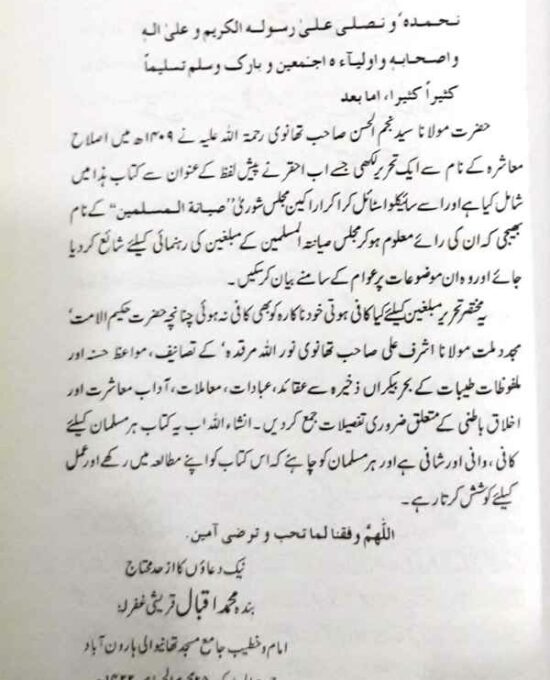 نحمدہٗ و نصلی علیٰ رسولہ الکریم و علیٰ الہٖ
واصحابہٖ واولیآءہ اجمعین و بارک وسلم تسلیماً
کثیراً کثیرا، اما بعد
حضرت مولانا سید نجم الحسن صاحب تھانوی رحمۃ اللہ علیہ نے ۱۴۰۹ھ میں اصلاح
معاشرہ کے نام سے ایک تحریر لکھی جسے اب احقر نے پیش لفظ کے عنوان سے کتاب ہذا میں
شامل کیا ہے اور اسے سائیکلو اسٹائل کرا کر اراکین مجلس شوریٰ ”صیانة المسلمین“ کے نام
بھیجی کہ ان کی رائے معلوم ہو کر مجلس صیانتہ المسلمین کے مبلغین کی رہنمائی کیلئے شائع کر دیا
جائے اور وہ ان موضوعات پر عوام کے سامنے بیان کر سکیں۔
یہ مختصر تحریر مبلغین کیلئے کیا کافی ہوتی خود ناکارہ کو بھی کافی نہ ہوئی چنانچہ حضرت حکیم الامت‘
مجدد ملت مولانا اشرف علی صاحب تھانوی نور اللہ مرقدہ‘ کے تصانیف، مواعظ حسنہ اور
ملفوظات طیبات کے بحر بیکراں ذخیرہ سے عقائد، عبادات، معاملات، آداب معاشرت اور
اخلاق باطنی کے متعلق ضروری تفصیلات جمع کر دیں۔ انشاء اللہ اب یہ کتاب ہر مسلمان کیلئے
کافی، وافی اور شافی ہے اور ہر مسلمان کو چاہئے کہ اس کتاب کو اپنے مطالعہ میں رکھے اور عمل
کیلئے کوشش کرتا رہے۔
اللّٰھمّ وفقنا لما تحب و ترضی آمین.
نیک دعاؤں کا از حد محتاج
بندہ محمد اقبال قریشی غفرلہٗ
امام و خطیب جامع مسجد تھانیوالی ہارون آباد